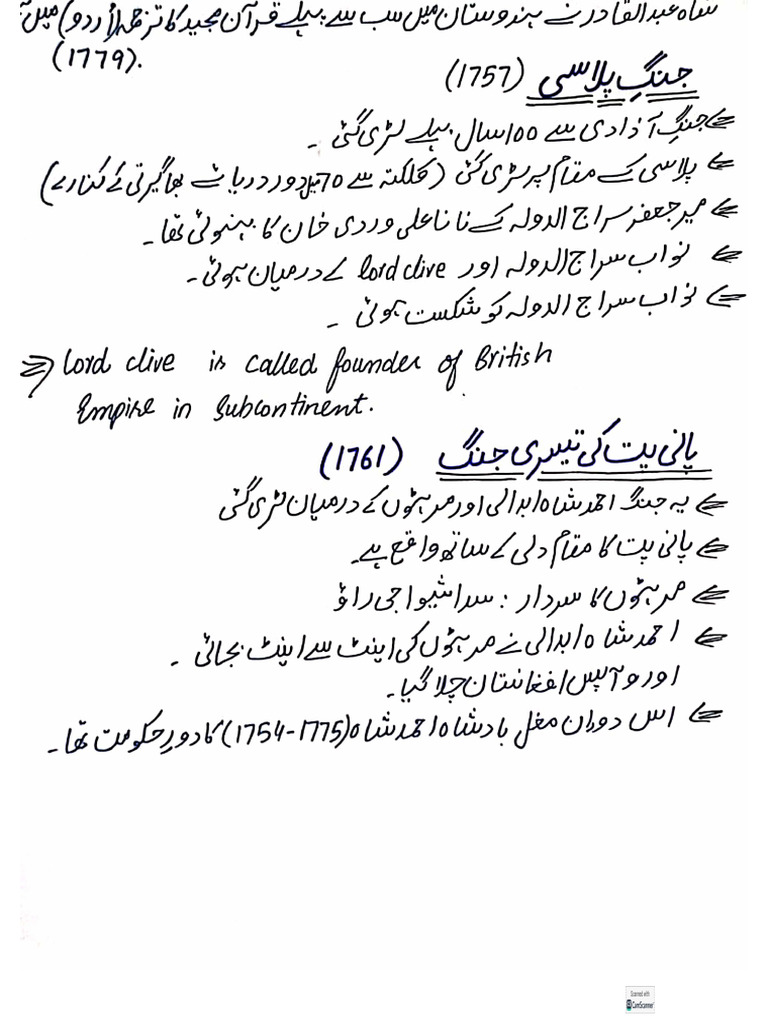 شاہ عبدالقادر نے ہندوستان میں سب سے پہلے قرآن مجید کا ترجمہ (اردو) میں
(1779).
جنگِ پلاسی (1757)
⇐ جنگِ آزادی سے 100 سال پہلے لڑی گئی ۔
⇐ پلاسی کے مقام پر لڑی گئی (کلکتہ سے 70 میل دور دریائے بھاگیرتی کے کنارے)
⇐ میر جعفر سراج الدولہ کے نانا علی وردی خان کا بہنوئی تھا ۔
⇐ نواب سراج الدولہ اور lord clive کے درمیان ہوئی ۔
⇐ نواب سراج الدولہ کو شکست ہوئی ۔
⇒ Lord clive is called founder of British
Empire in Subcontinent.
پانی پت کی تیسری جنگ (1761)
⇐ یہ جنگ احمد شاہ ابدالی اور مرہٹوں کے درمیان لڑی گئی
⇐ پانی پت کا مقام دلی کے ساتھ واقع ہے۔
⇐ مرہٹوں کا سردار : سداشیوا جی راؤ
⇐ احمد شاہ ابدالی نے مرہٹوں کی اینٹ سے اینٹ بجائی ۔
اور وآپس افغانستان چلا گیا ۔
⇐ اس دوران مغل بادشاہ احمد شاہ (1754-1775) کا دورِ حکومت تھا ۔
Scanned with
CamScanner